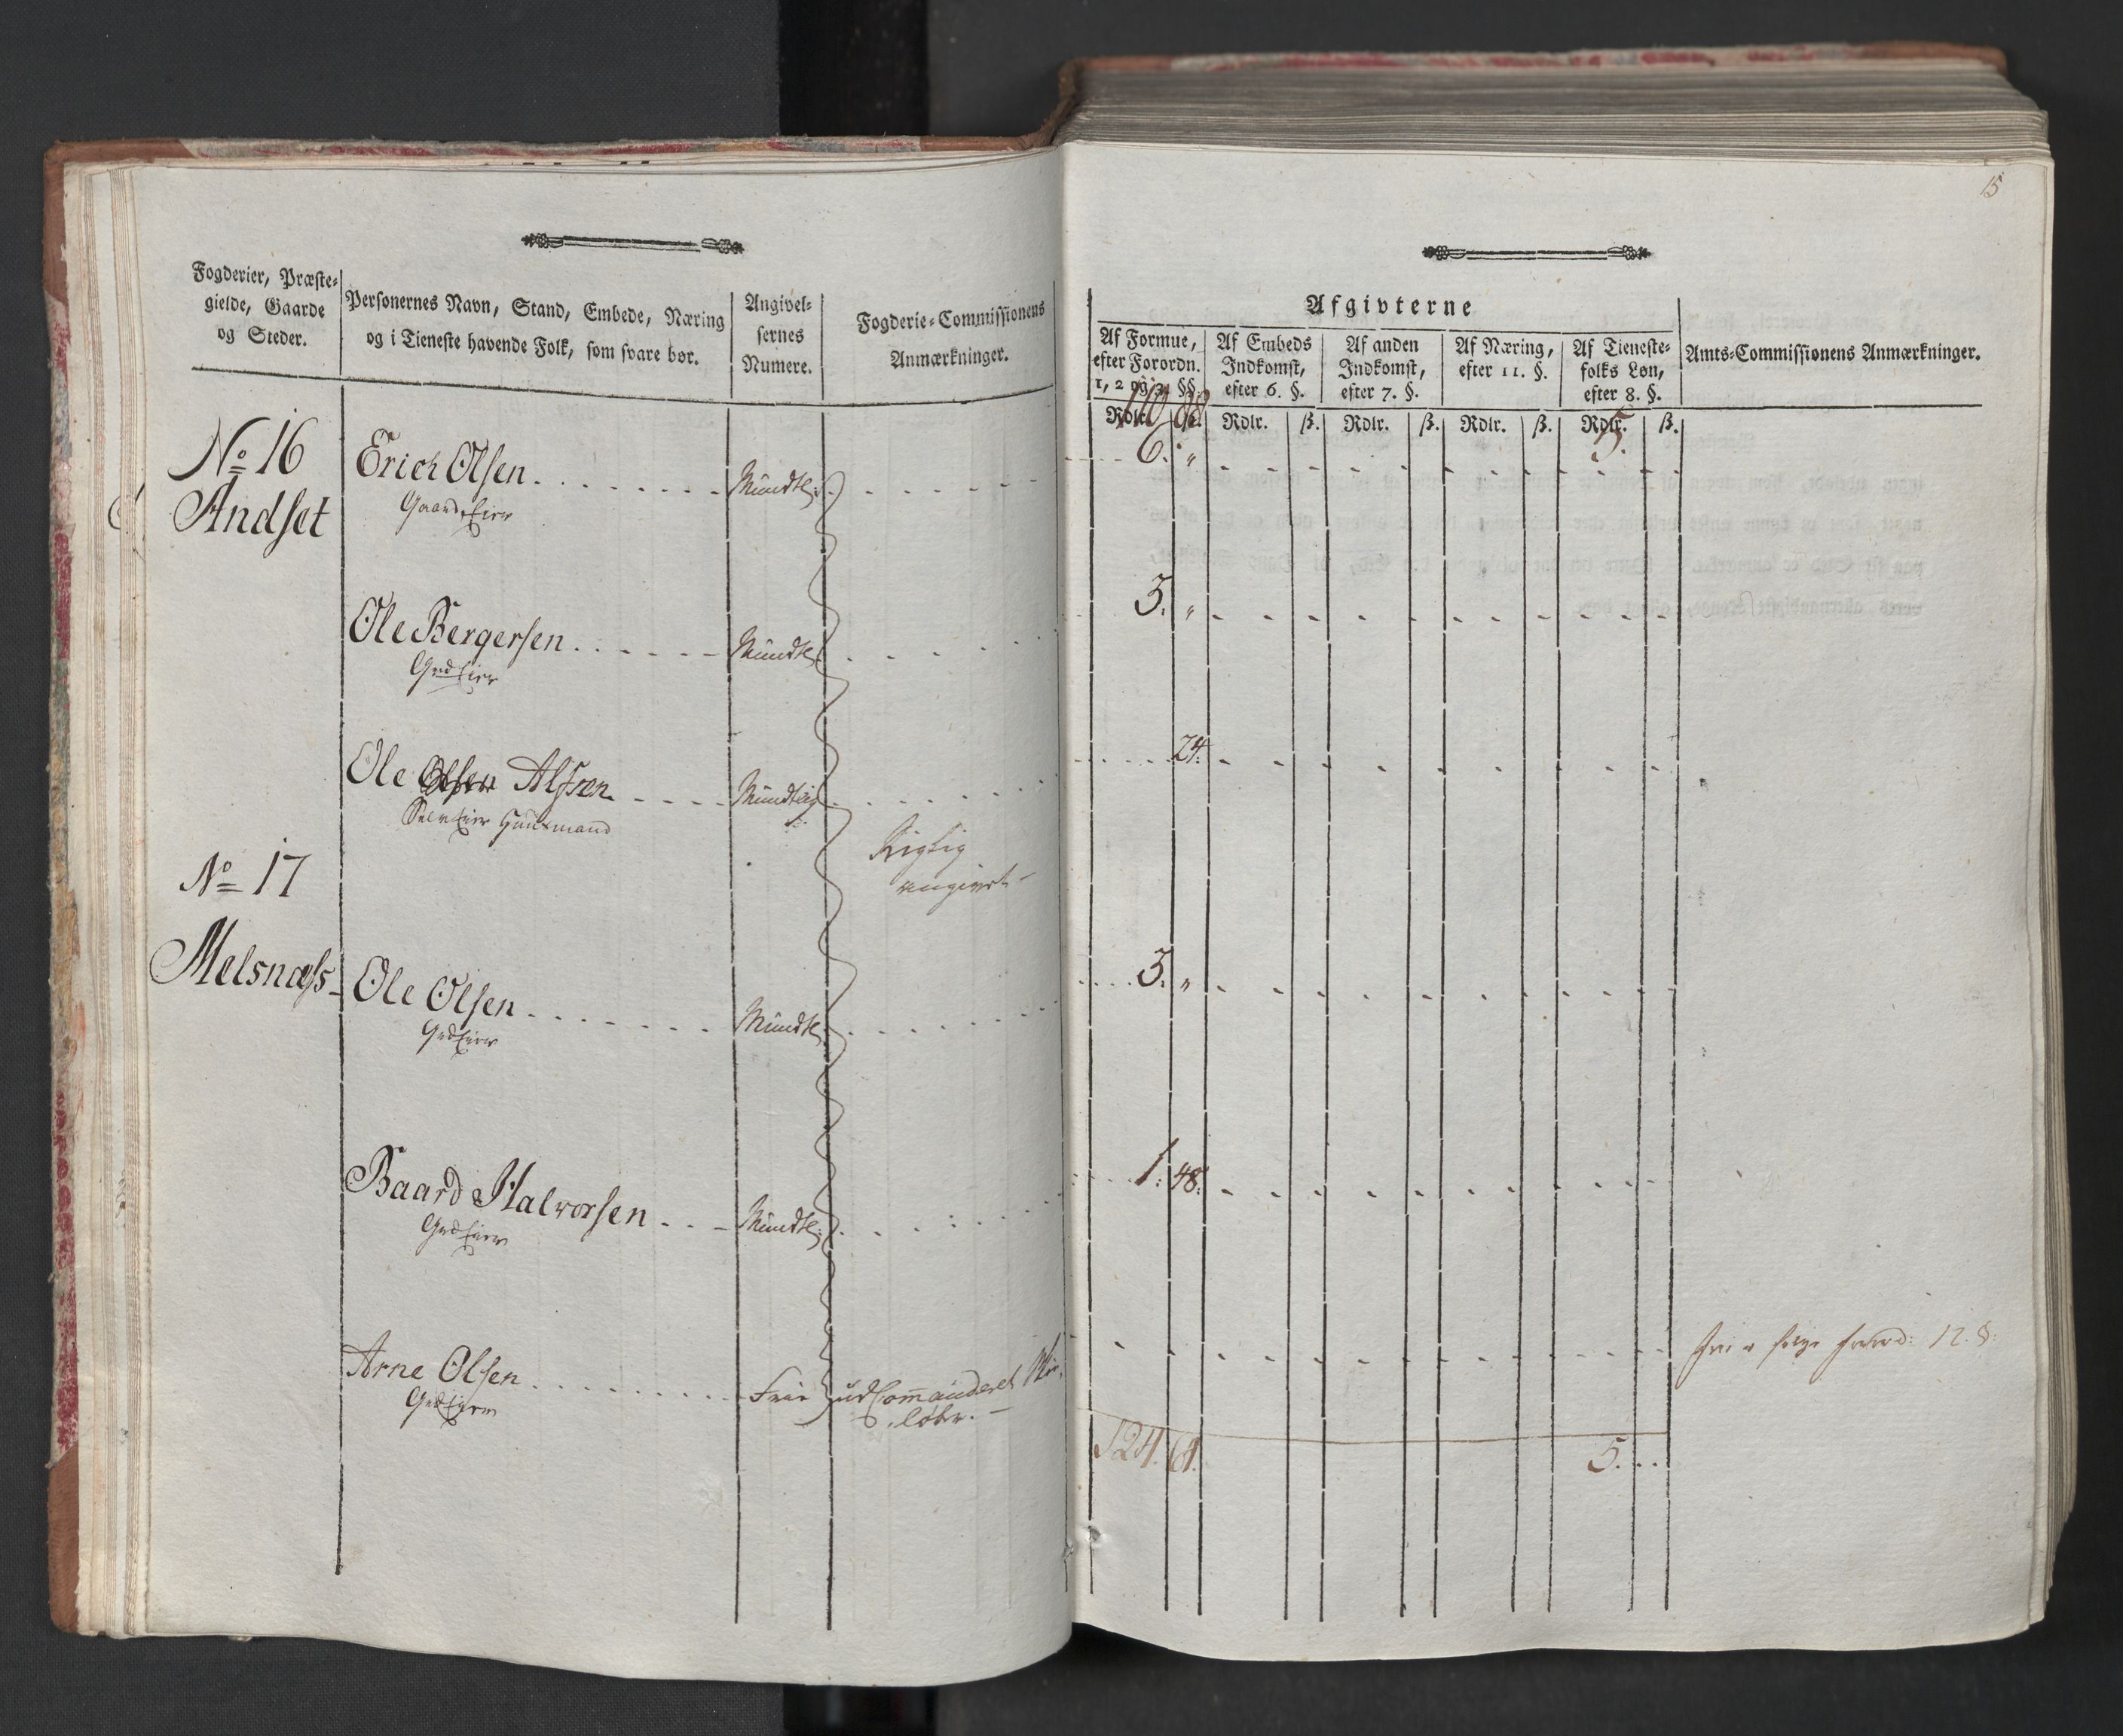 Fogderier, Præste-
gielde, Gaarde
og Steder.
Personernes Navn, Stand, Embede, Næring
og i Tieneste havende Folk, som svare bør.
Angivel-
sernes
Numere.
Fogderie-Commissionens
Anmærkninger.
No 16
Andset
Erich Olsen
Gaard Eier
Mundtl:
Ole Bergersen
Grd Eier
Mundtl:
Ole Alfsen
Selv Eier Huusmand
Mundtlig
Rigtig
angivet
No 17
Melsnæss
Ole Olsen
Grd Eier
Mundtl:
Baard Halvorsen
Grd Eier
Mundtl:
Arne Olsen
Grd Eier
Frie udCommanderet
15
Afgivterne
Af Formue,
efter Forordn.
1, 2 og 3. §§.
Af Embeds
Indkomst,
efter 6. §.
Af anden
Indkomst,
efter 7. §.
Af Næring,
efter 11. §.
Af Tieneste-
folks Løn,
efter 8. §.
Amts-Commissionens Anmærkninger.
Rdlr. ß. Rdlr. ß. Rdlr. ß. Rdlr. ß. Rdlr. ß.
5.
6. "
3. "
24.
3. "
1. 48.
12. §.
124.
5.